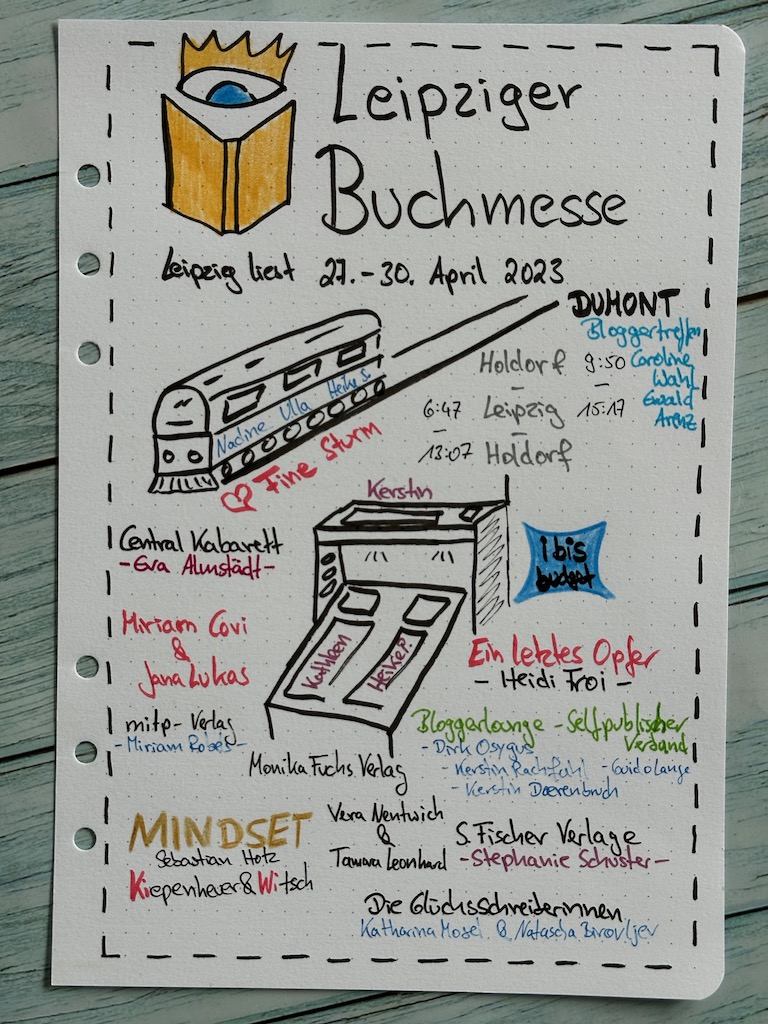 Leipziger
Buchmesse
Leipzig liest 27.-30. April 2023
DUMONT
Bloggertreffen
Caroline
Wahl
Ewald
Arenz
Holdorf 9:50
–
6:47 Leipzig 15:17
–
13:07 Holdorf
Nadine Ulla Heike S.
Fine Sturm
Kerstin
Central Kabarett
-Eva Almstädt-
Ibis
budget
Kathleen
Heike P.
Miriam Covi
&
Jana Lukas
Ein letztes Opfer
- Heidi Troi -
mitp-Verlag
-Miriam Robels-
Monika Fuchs Verlag
Bloggerlounge - Selfpublischer
Verband
- Dirk Osygus
- Kerstin Rachfahl - Guido Lange
- Kerstin Daerenbruch
MINDSET
Sebastian Hotz
Kiepenheuer&Witsch
Vera Nentwich
&
Tamara Leonhard
S. Fischer Verlage
-Stephanie Schuster-
Die Glücksschreiterinnen
Katharina Mosel & Natascha